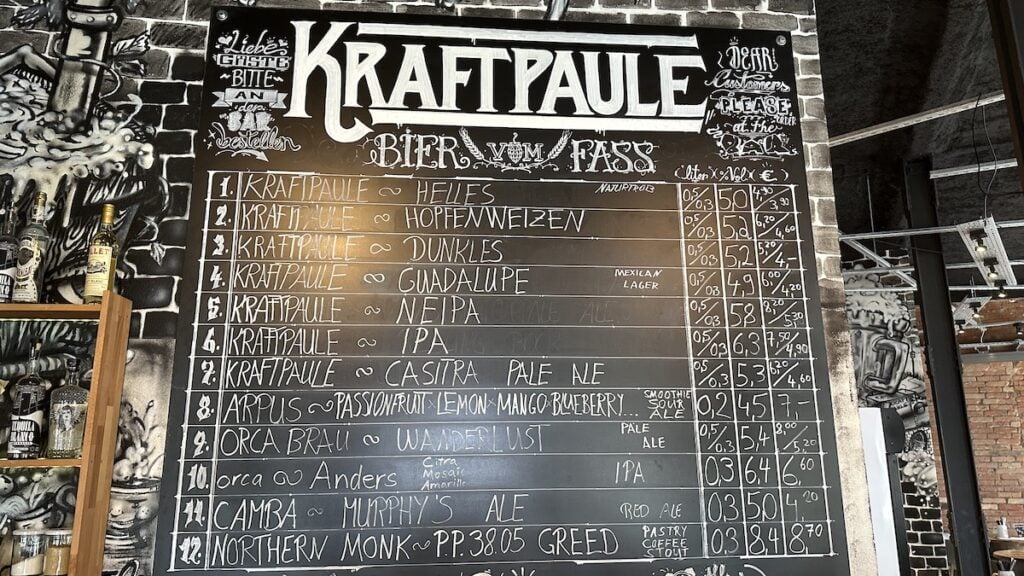 Liebe
Gäste
Bitte
an der
Bar
bestellen
KRAFTPAULE
BIER VOM FASS
Dear
Customers
PLEASE
at the
(Liter) x %Vol x €
1. KRAFTPAULE ~ HELLES NATURTRÜB 0,5/0,3 5,0 4,90/3,90
2. KRAFTPAULE ~ HOPFENWEIZEN 0,5/0,3 5,2 6,20/4,60
3. KRAFTPAULE ~ DUNKLES 0,5/0,3 5,2 5,20/4,-
4. KRAFTPAULE ~ GUADALUPE MEXICAN LAGER 0,5/0,3 4,9 /4,20
5. KRAFTPAULE ~ NEIPA 0,5/0,3 5,8 8,20/5,30
6. KRAFTPAULE ~ IPA 0,5/0,3 6,3 7,50/4,90
7. KRAFTPAULE ~ CASITRA PALE ALE 0,5/0,3 5,3 6,20/4,60
8. ARPUS ~ PASSIONFRUIT×LEMON×MANGO×BLUEBERRY... SMOOTHIE ALE 0,2 4,5 7,-
9. ORCA BRAU ~ WANDERLUST PALE ALE 0,5/0,3 5,4 8,00/5,20
10. orca ~ Anders Citra Mosaic Amarillo IPA 0,3 6,4 6,60
11. CAMBA ~ MURPHY'S ALE (RED ALE 0,3 5,0 4,20
12. NORTHERN MONK ~ P.P. 38.05 GREED PASTRY COFFEE STOUT 0,3 8,4 8,70